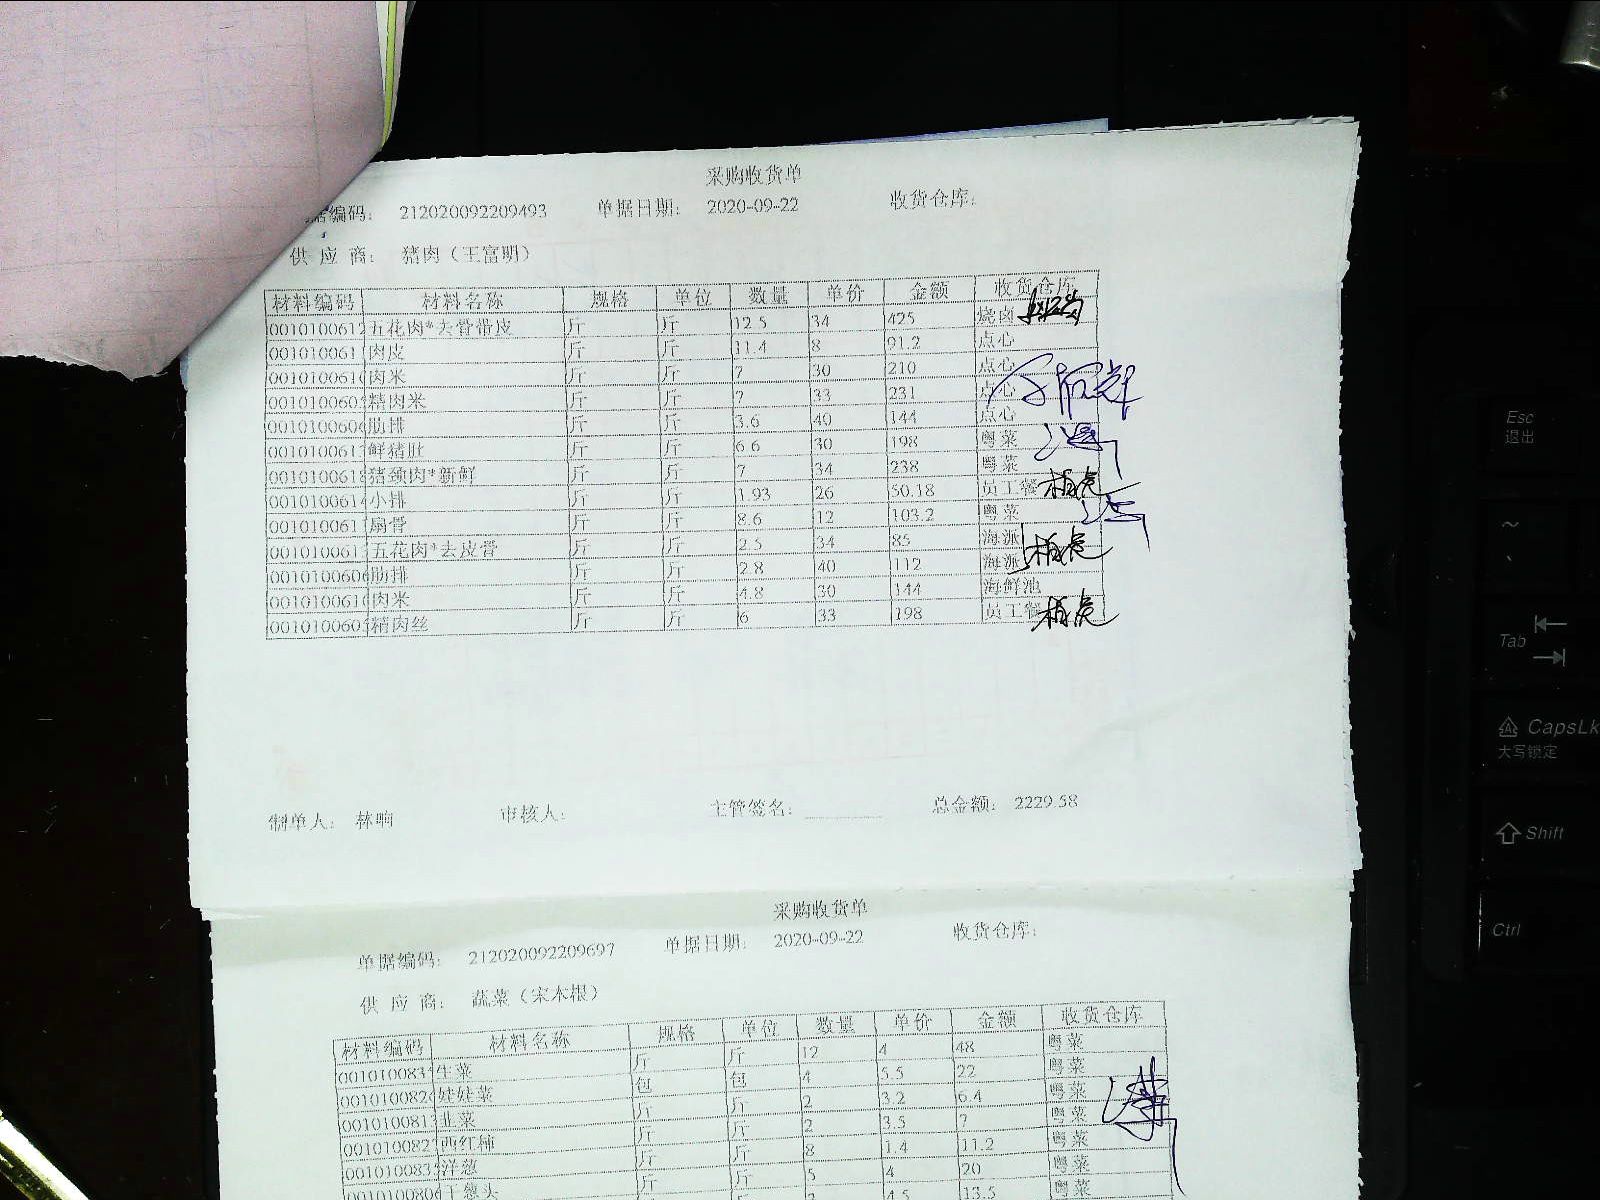 采购收货单
据编码: 212020092209493 单据日期: 2020-09-22 收货仓库:
供 应 商: 猪肉（王富明）
材料编码 材料名称 规格 单位 数量 单价 金额 收货仓库
0010100612 五花肉*去骨带皮 斤 斤 12.5 34 425 烧卤
001010061 肉皮 斤 斤 11.4 8 91.2 点心
001010061 肉米 斤 斤 7 30 210 点心
001010060 精肉米 斤 斤 7 33 231 点心
001010060 肋排 斤 斤 3.6 40 144 点心
001010061 鲜猪肚 斤 斤 6.6 30 198 粤菜
001010061 猪颈肉*新鲜 斤 斤 7 34 238 粤菜
001010061 小排 斤 斤 1.93 26 50.18 员工餐
001010061 扇骨 斤 斤 8.6 12 103.2 粤菜
001010061 五花肉*去皮骨 斤 斤 2.5 34 85 海派
001010060 肋排 斤 斤 2.8 40 112 海派
001010061 肉米 斤 斤 4.8 30 144 海鲜池
001010060 精肉丝 斤 斤 6 33 198 员工餐
制单人: 林晌 审核人: 主管签名: 总金额: 2229.58
采购收货单
单据编码: 212020092209697 单据日期: 2020-09-22 收货仓库:
供 应 商: 蔬菜（宋木根）
材料编码 材料名称 规格 单位 数量 单价 金额 收货仓库
001010083 生菜 斤 斤 12 4 48 粤菜
001010082 娃娃菜 包 包 4 5.5 22 粤菜
001010081 韭菜 斤 斤 2 3.2 6.4 粤菜
001010082 西红柿 斤 斤 2 3.5 7 粤菜
001010083 洋葱 斤 斤 8 1.4 11.2 粤菜
001010080 干葱头 斤 斤 5 4 20 粤菜
4.5 13.5 粤菜
Esc
退出
~
Tab
CapsLk
大写锁定
Shift
Ctrl